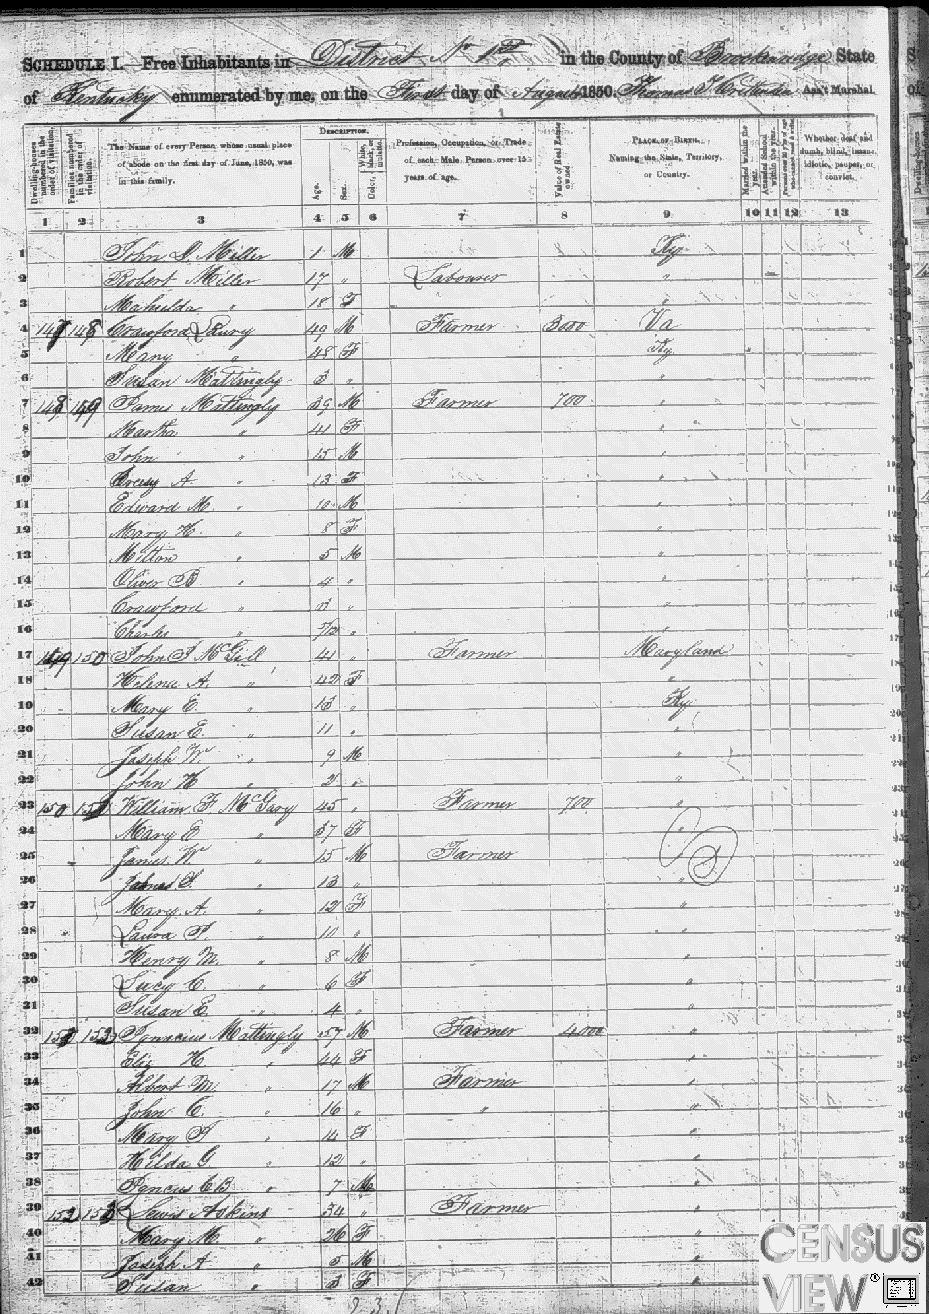 SCHEDULE I.—Free Inhabitants in District No 1st in the County of Breckinridge State
of Kentucky enumerated by me, on the First day of August 1850. Thomas Ass't Marshal.
Dwelling-houses numbered in the order of visitation.
Families numbered in the order of visitation.
The Name of every Person whose usual place of abode on the first day of June, 1850, was in this family.
DESCRIPTION.
Age.
Sex.
Color, White, black, or mulatto.
Profession, Occupation, or Trade of each Male Person over 15 years of age.
Value of Real Estate owned
PLACE OF BIRTH. Naming the State, Territory, or Country.
Married within the year.
Attended School within the year.
Whether deaf and dumb, blind, insane, idiotic, pauper, or convict.
1 2 3 4 5 6 7 8 9 10 11 12 13
1 John Miller 1 M Ky
2 Robert Miller 17 " Labourer "
3 " 18 F "
4 147 148 Crawford Lewry 49 M Farmer 3000 Va
5 Mary " 48 F Ky
6 Susan Mattingly 3 " "
7 148 149 James Mattingly 39 M Farmer 700 "
8 Martha " 41 F "
9 John " 15 M "
10 A. " 13 F "
11 Edward M. " 10 M "
12 Mary H. " 8 F "
13 Milton " 5 M "
14 Oliver B " 4 " "
15 Crawford " 3 " "
16 Charles " " "
17 149 150 John S McGill 41 " Farmer Maryland
18 Helena A. " 42 F "
19 Mary E. " 13 " Ky
20 Susan E. " 11 " "
21 Joseph W " 9 M "
22 John H " 2 " "
23 150 151 William F McGary 45 " Farmer 700 "
24 Mary E " 37 F "
25 James W " 15 M Farmer "
26 S. " 13 " "
27 Mary A. " 12 F "
28 Laura F. " 10 " "
29 Henry M. " 8 M "
30 Lucy C. " 6 F "
31 Susan E. " 4 " "
32 151 152 Ignacius Mattingly 57 M Farmer 4000 "
33 Eliz H " 44 F "
34 Albert M. " 17 M Farmer "
35 John C. " 16 " " "
36 Mary F " 14 F "
37 Hilda G " 12 " "
38 C B " 7 M "
39 152 153 Lewis Askins 34 " Farmer "
40 Mary M. " 26 F "
41 Joseph A " 5 M "
42 Susan " 3 F "
CENSUS
VIEW®